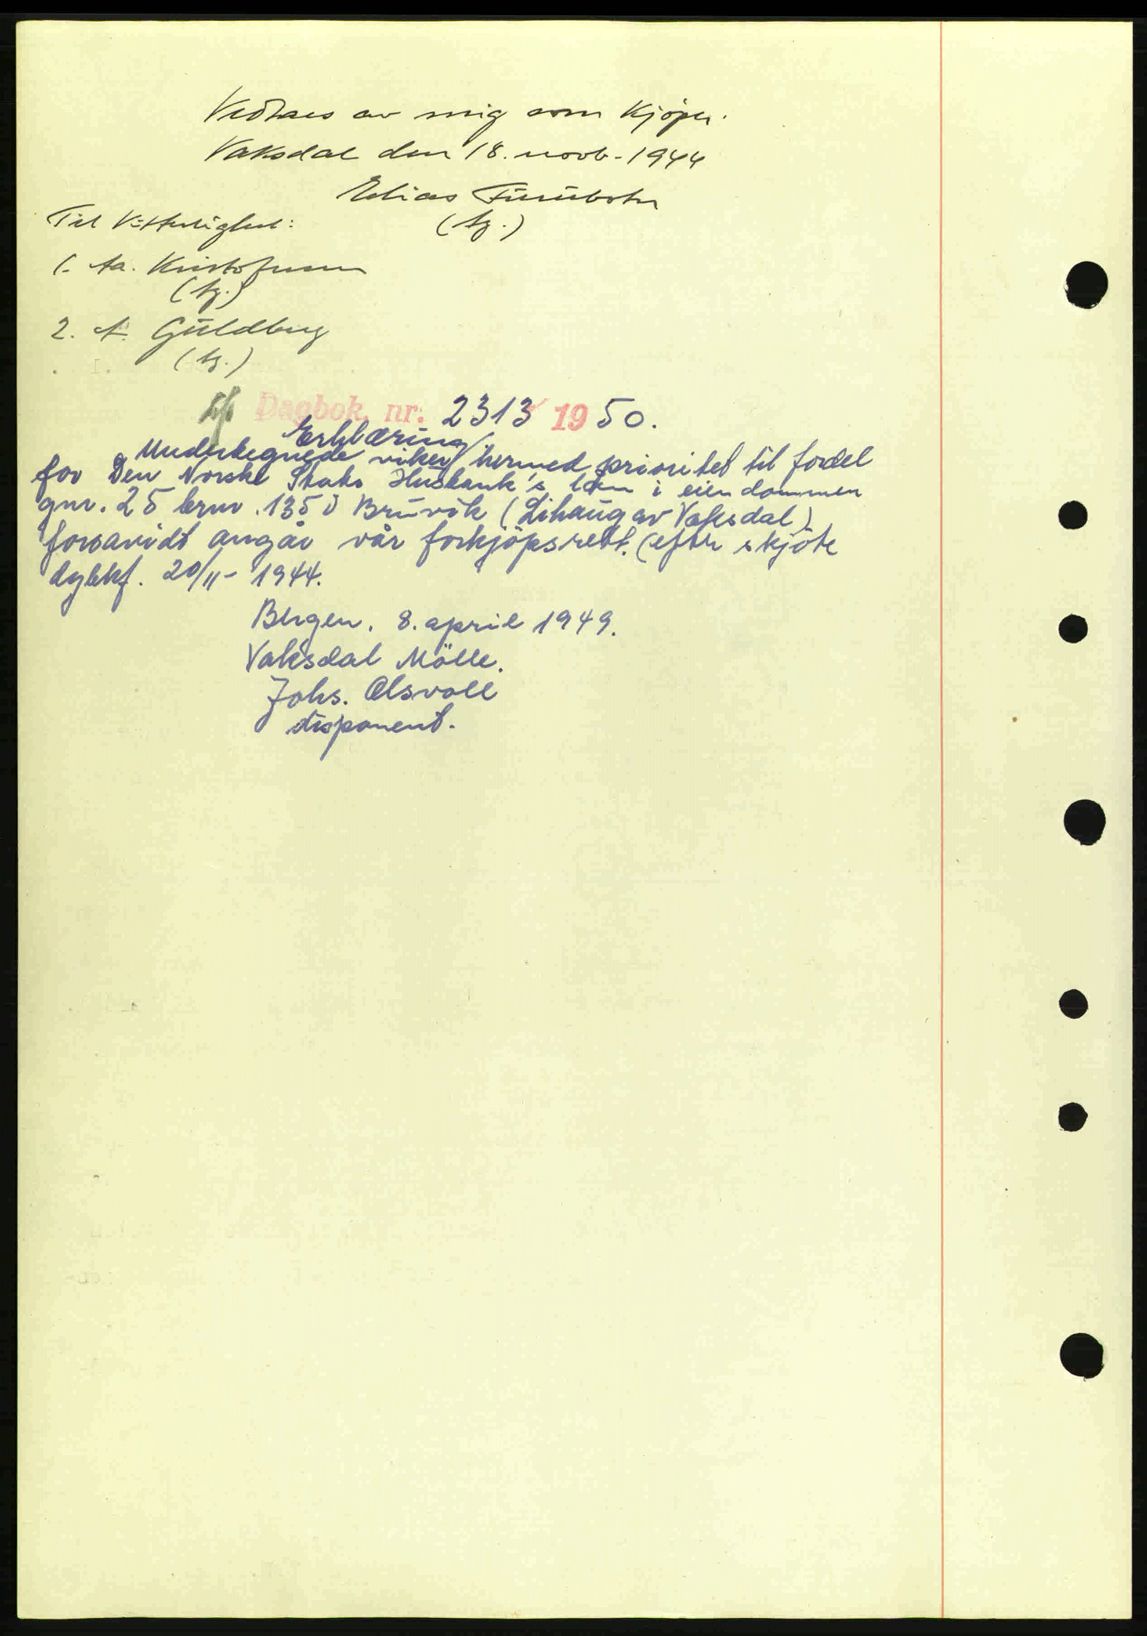 Vedtaes av mig som Kjøper.
Vaksdal den 18. novb. 1944
Elias Furubotn
(sg.)
Til Vitterlighet:
1. Aa. Kristofersen
(sg.)
2. A. Guldberg
(sg.)
Dagbok. nr. 2313 1950.
Erklæring
Undertegnede viker hermed prioritet til fordel
for Den Norske Stats Husbank's lån i eiendommen
gnr. 25 brnr. 135 i Bruvik (Lihaug av Vaksdal)
forsavidt angår vår forkjöpsrett. (efter skjöte
dglest. 20/11- 1944.
Bergen. 8. april 1949.
Vaksdal Mölle.
Johs. Olsvoll
disponent.